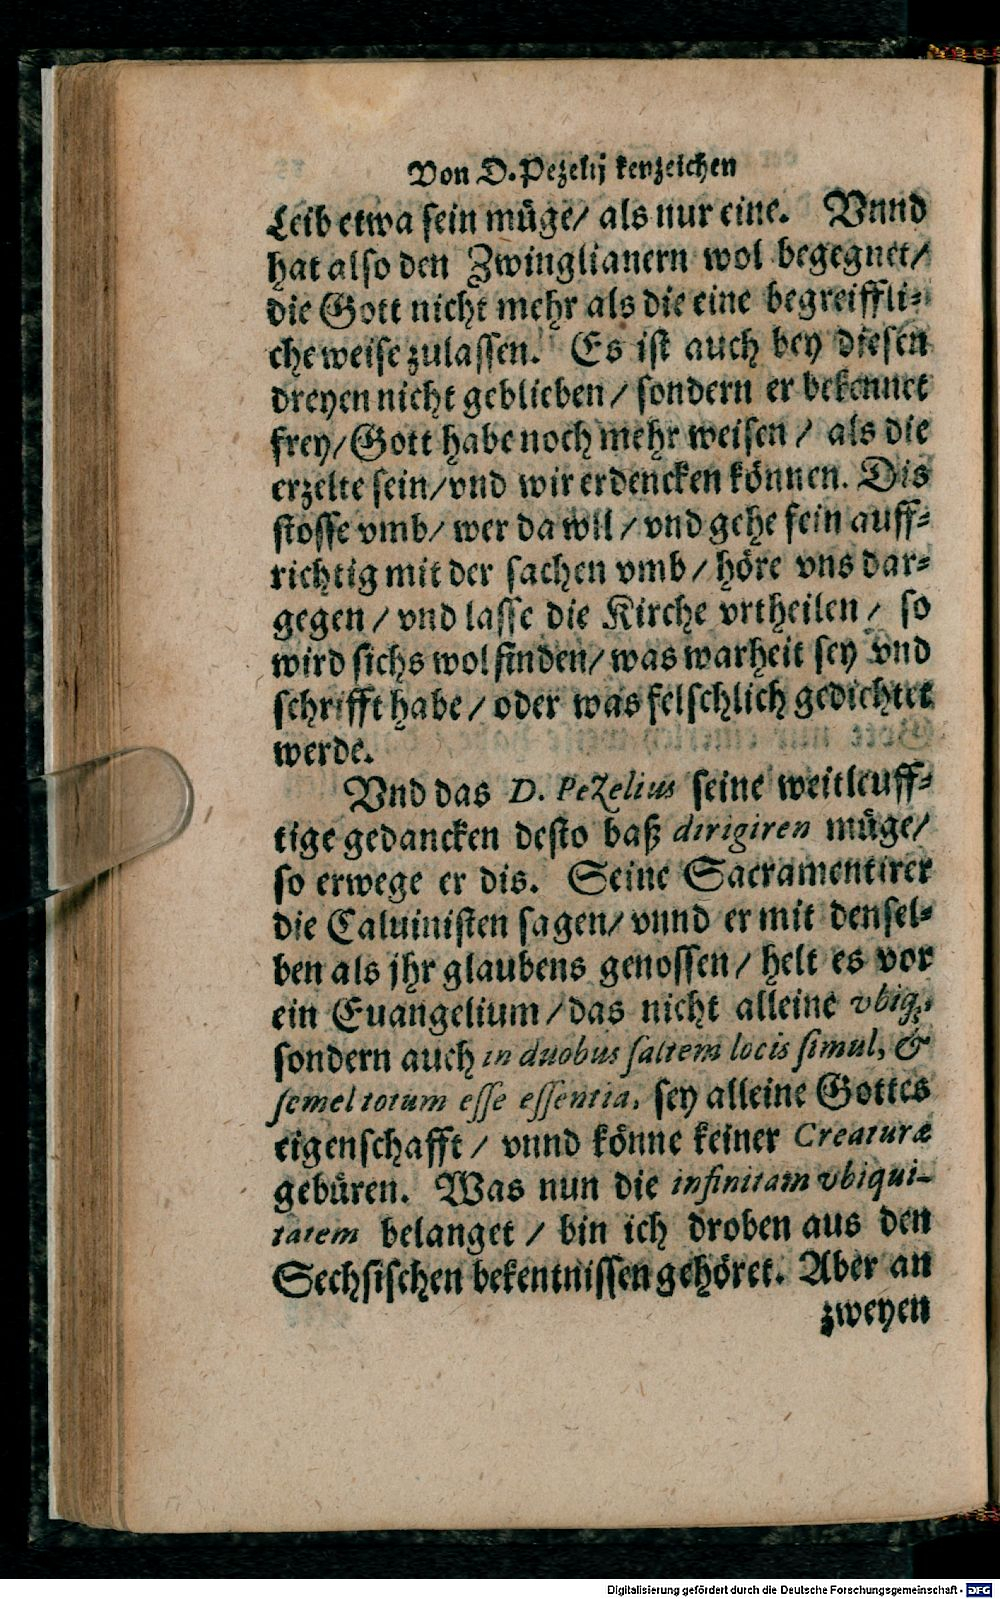 Von D. Pezelij kenzeichen
Leib etwa sein müge/ als nur eine. Vnnd
hat also den Zwinglianern wol begegnet/
die Gott nicht mehr als die eine begreiffli-
che weise zulassen. Es ist auch bey diesen
dreyen nicht geblieben/ sondern er bekennet
frey/ Gott habe noch mehr weisen/ als die
erzelte sein/ vnd wir erdencken können. Dis
stosse vmb/ wer da wil/ vnd gehe fein auff-
richtig mit der sachen vmb/ höre vns dar-
gegen/ vnd lasse die Kirche vrtheilen/ so
wird sichs wol finden/ was warheit sey vnd
schrifft habe/ oder was felschlich gedichtet
werde.
Vnd das D. PeZelius seine weitleuff-
tige gedancken desto baß dirigiren müge/
so erwege er dis. Seine Sacramentirer
die Caluinisten sagen/ vnnd er mit densel-
ben als jhr glaubens genossen/ helt es vor
ein Euangelium/ das nicht alleine vbiq;
sondern auch in duobus saltem locis simul, &
semel totum esse essentia, sey alleine Gottes
eigenschafft/ vnnd könne keiner Creaturæ
gebüren. Was nun die infinitam vbiqui-
tatem belanget/ bin ich droben aus den
Sechsischen bekentnissen gehöret. Aber an
zweyen
Digitalisierung gefördert durch die Deutsche Forschungsgemeinschaft - DFG